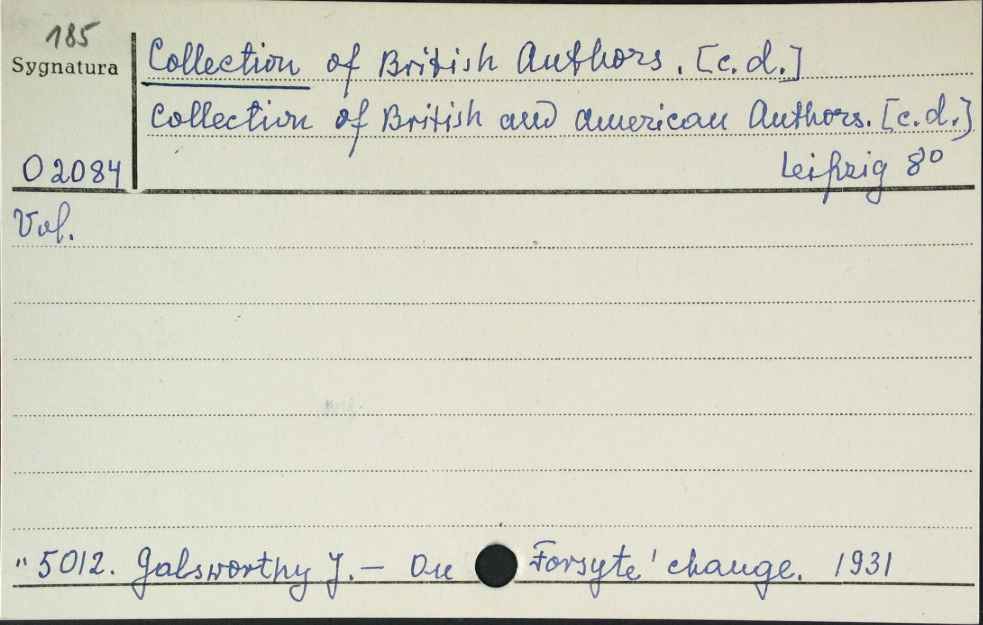 185
Sygnatura
Collection of British Authors. [c.d.]
Collection of British and American Authors. [c.d.]
O 2084
Leipzig 8°
Vol.
" 5012. Galsworthy J. — On Forsyte 'change. 1931